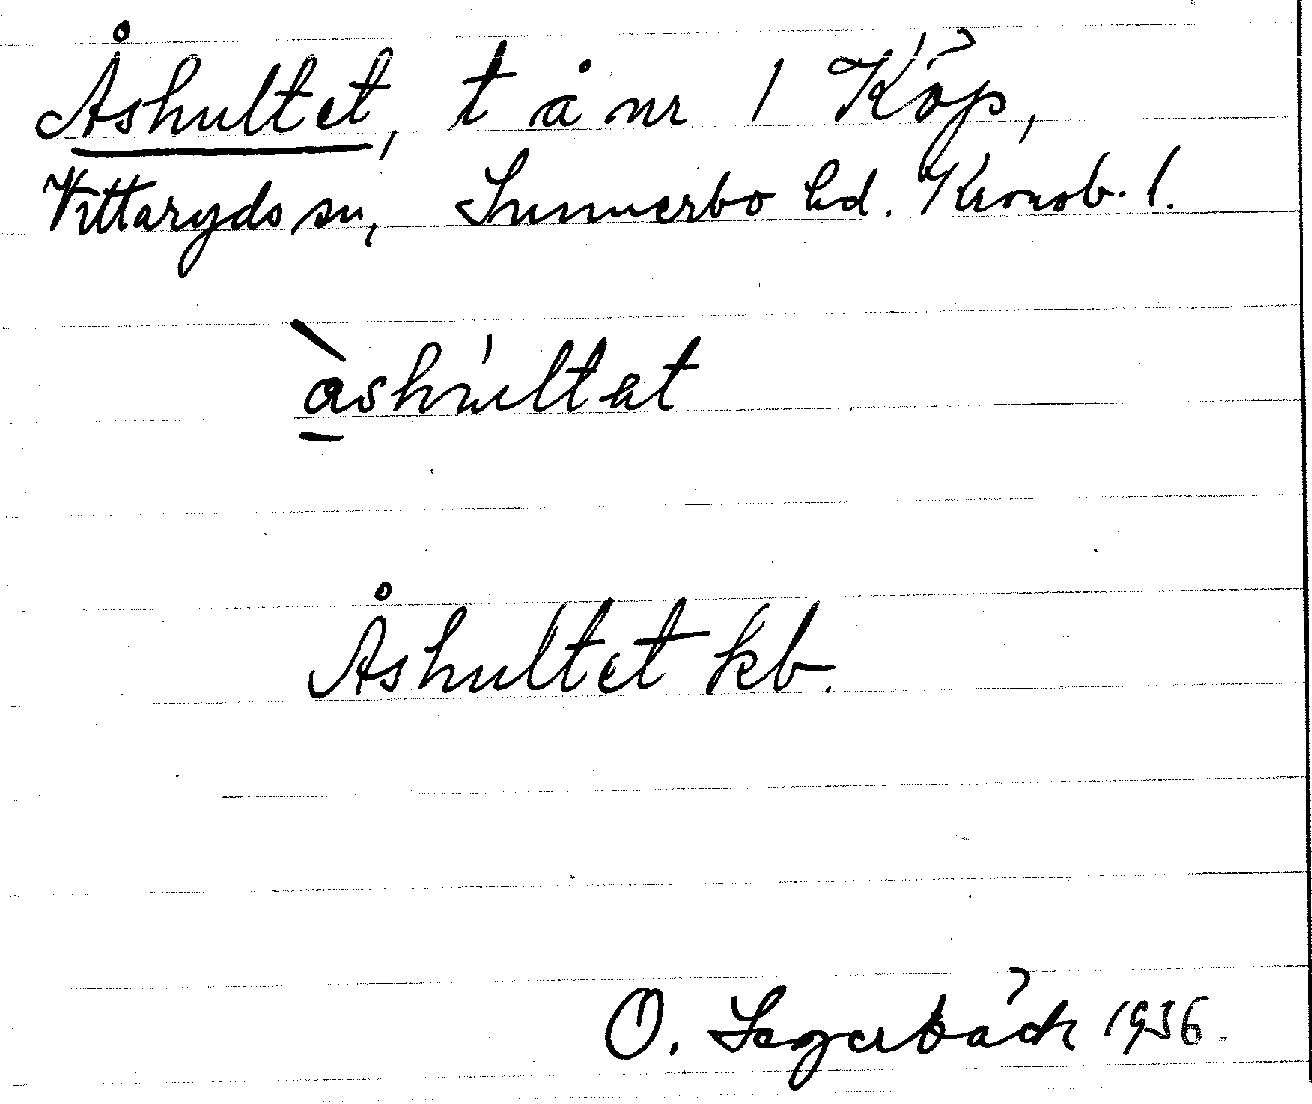 Åshultet, t å nr 1 Köp,
Vittaryds sn, Sunnerbo hd. Kronob. l.
åshultet
Åshultet kb.
O. Lagerbäck 1936.